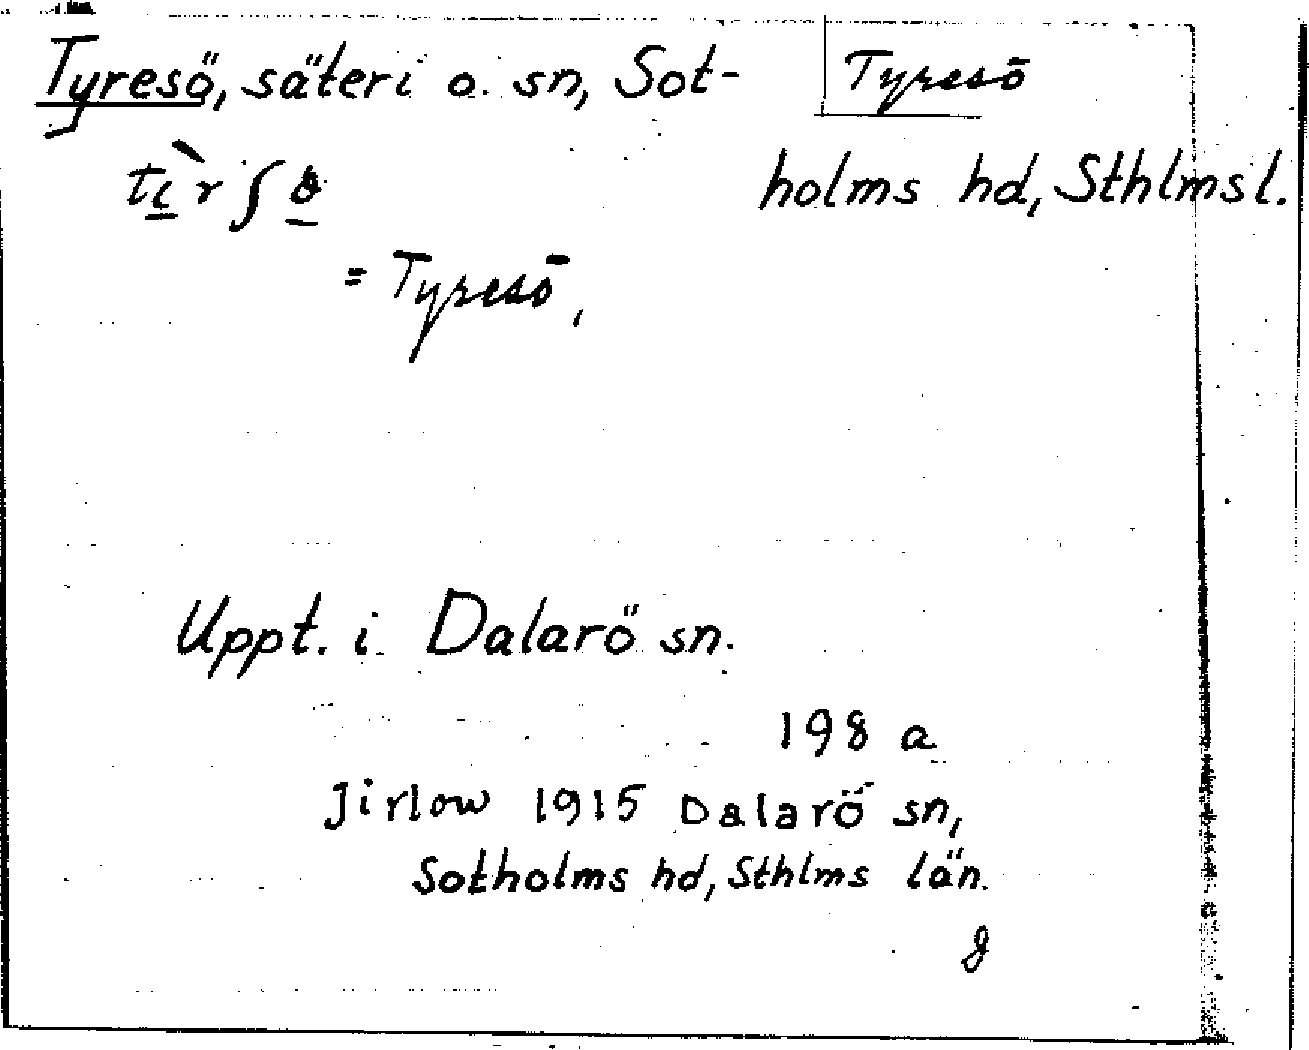 Tyresö, säteri o. sn, Sot-
Tyresö
holms hd, Sthlmsl.
= Tyresö,
Uppt. i Dalarö sn.
198 a
Jirlow 1915 Dalarö sn,
Sotholms hd, Sthlms län.